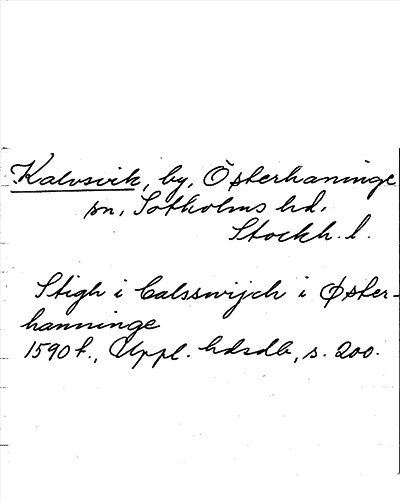 Kalvsvik, by, Österhaninge
sn, Sotholms hd.
Stockh. l.
Stigh i Calsswijch i Øster-
hanninge
1590 f., Uppl. hdsdb, s. 200.